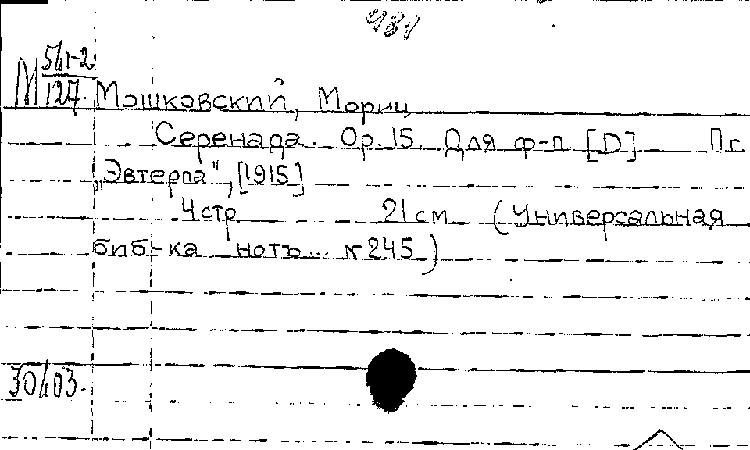 481
М 561-2/127
Мошковский, Мориц
Серенада. Op. 15. Для ф-п [D] Пг.
„Эвтерпа", [1915]
4 стр 21 см (Универсальная
биб-ка нотъ... №245)
30/103.